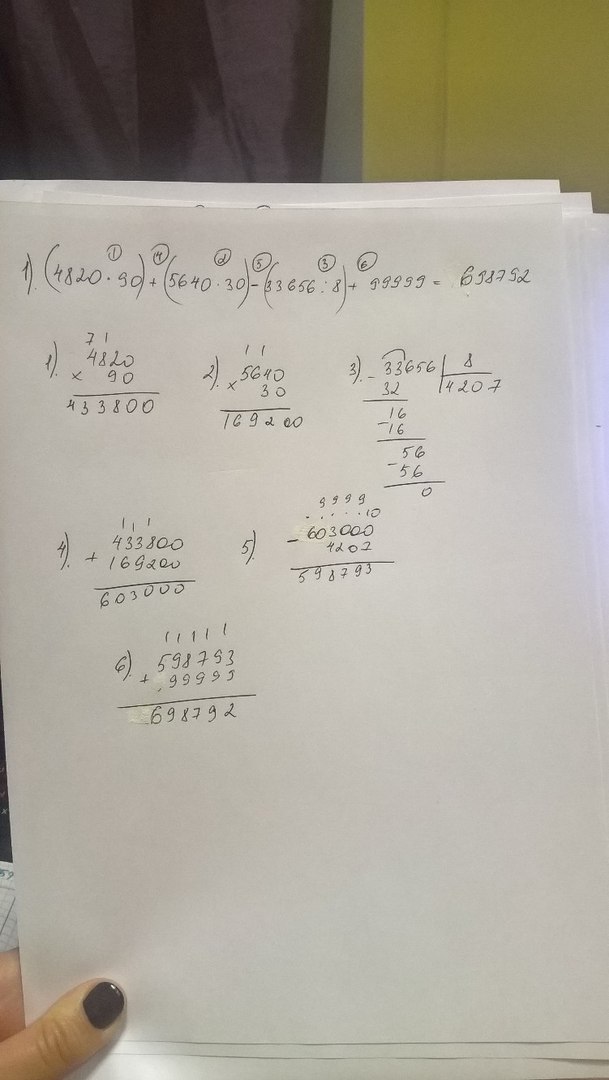 1). (4820 · 90) + (5640 · 30) - (33656 : 8) + 99999 = 698792
① ④ ② ⑤ ③ ⑥
1). 4820
71
× 90
433800
2). 5640
11
× 30
169200
3). - 33656 | 8
32 4207
16
- 16
56
- 56
0
4). 433800
111
+ 169200
603000
5) 9999
. . . . . 10
- 603000
4207
598793
6). 11111
598793
+ 99999
698792